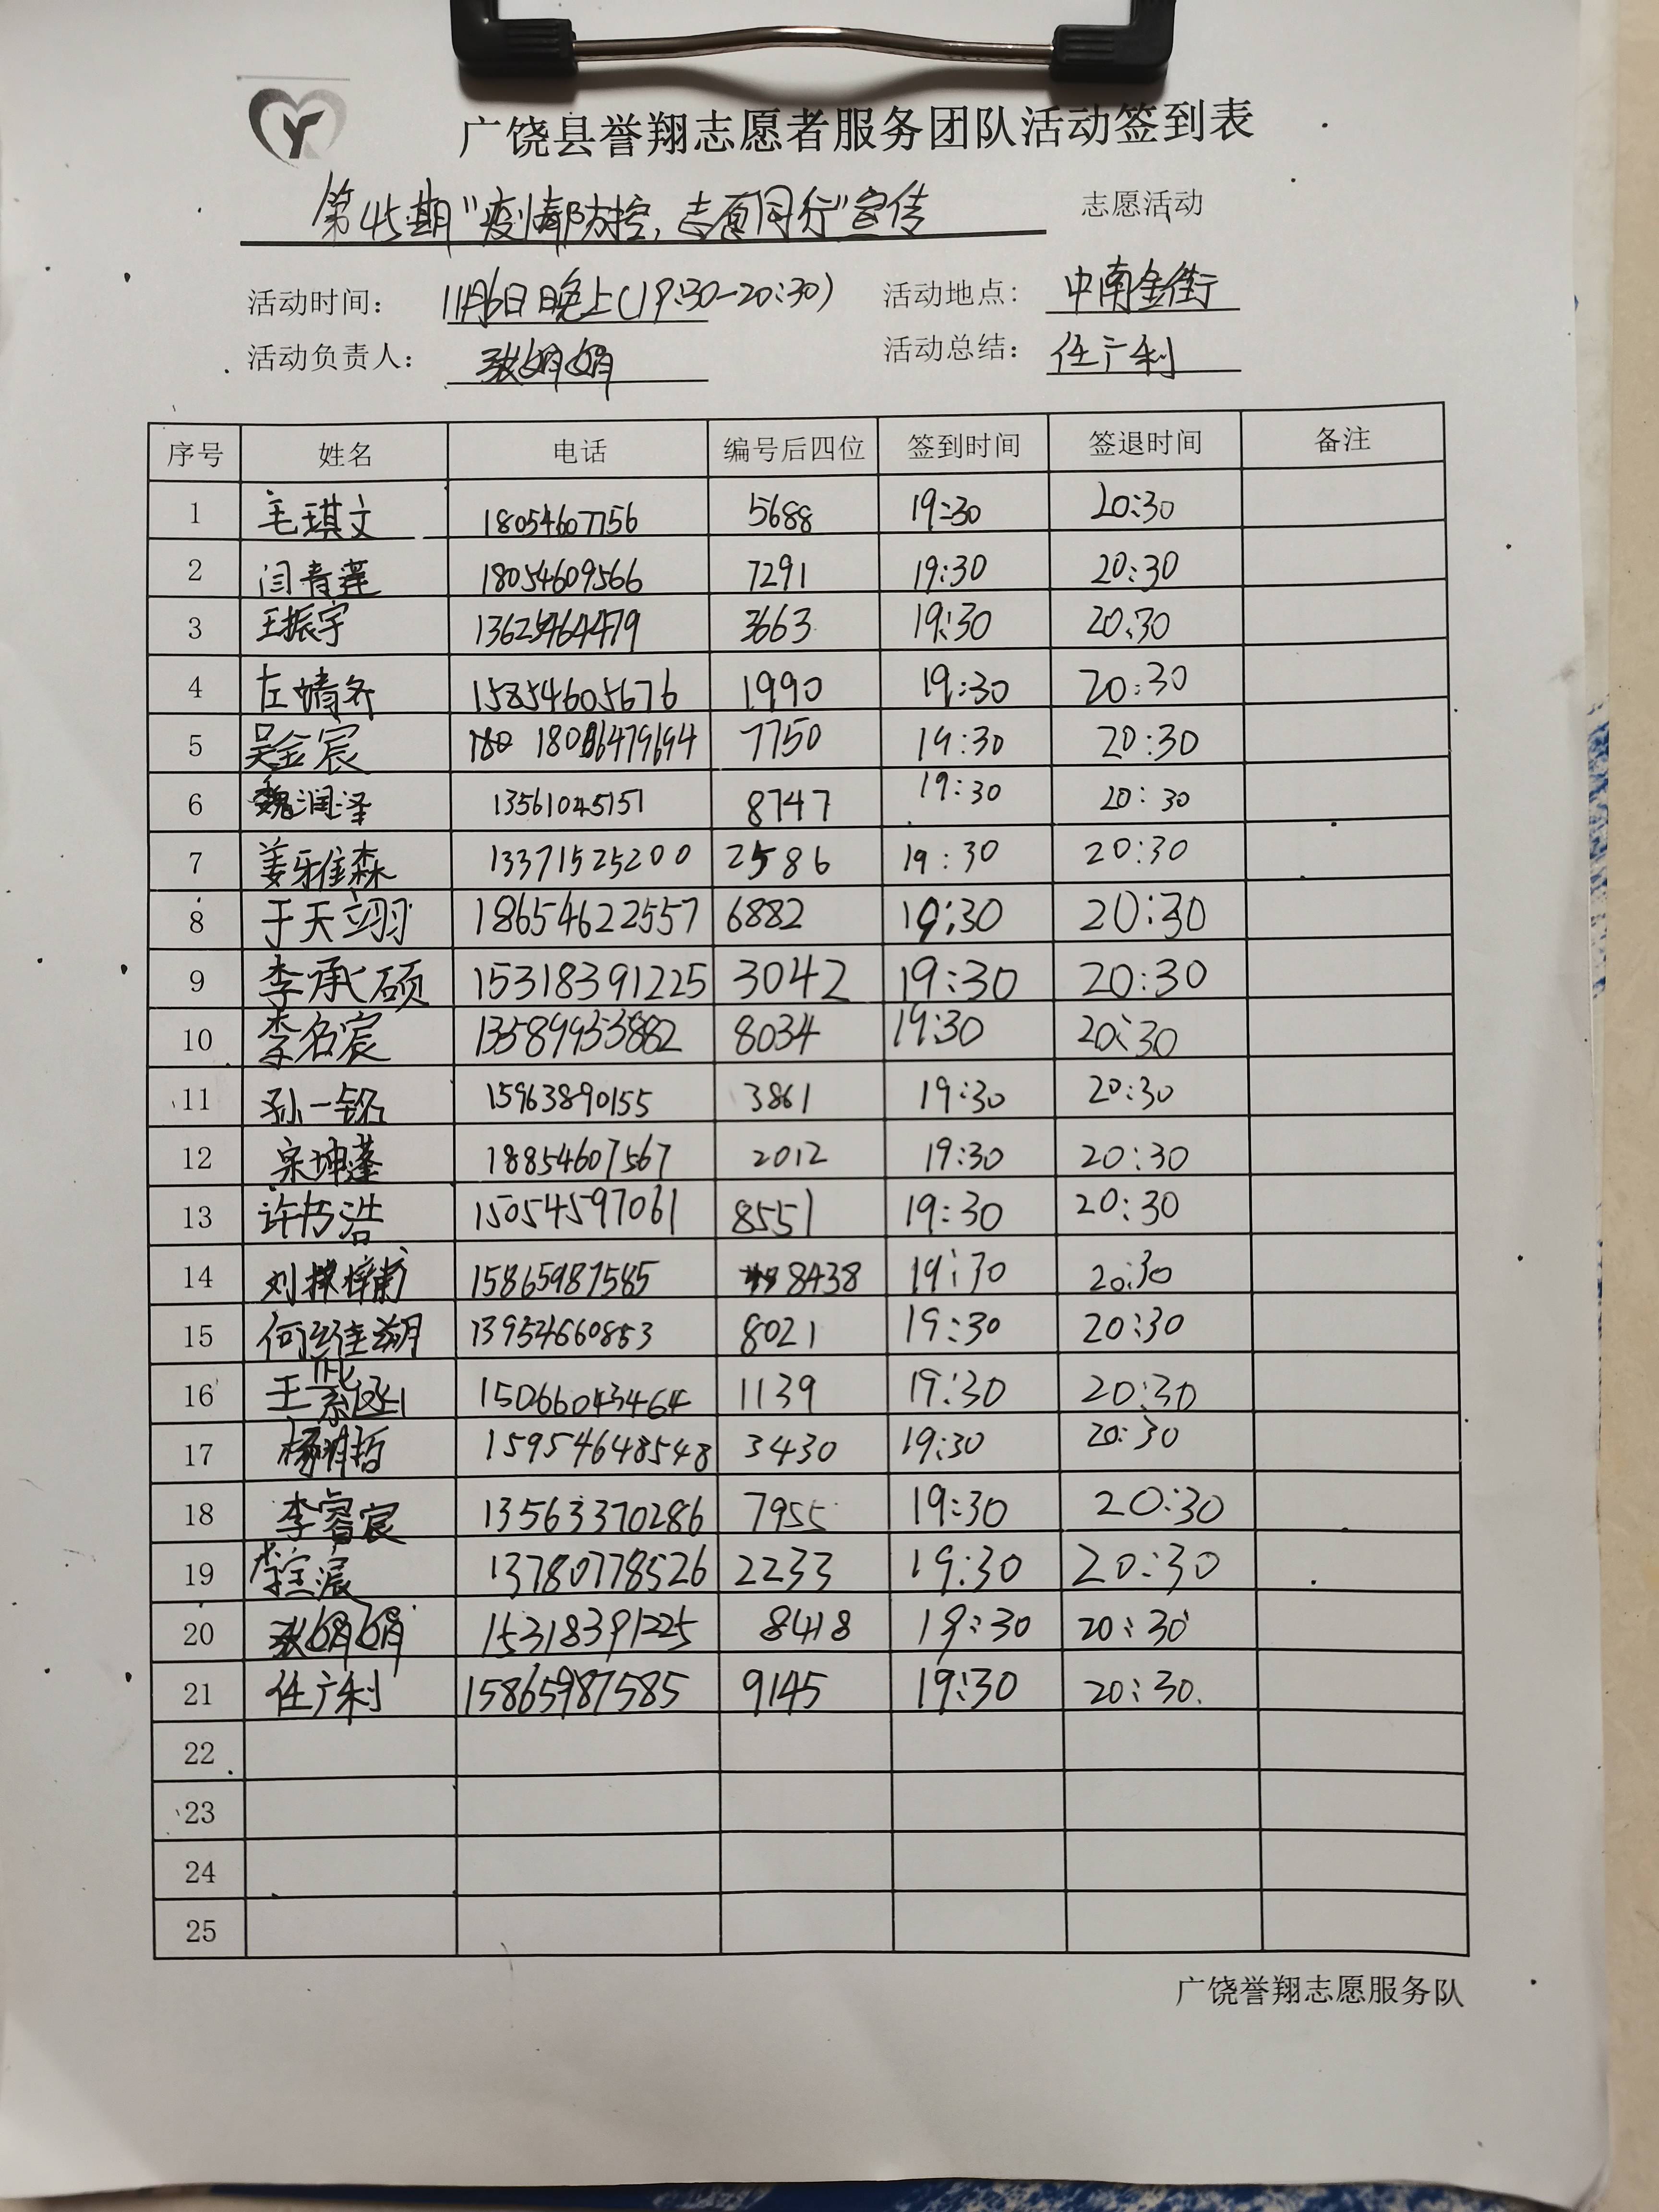 广饶县誉翔志愿者服务团队活动签到表
第45期“疫情防控,志愿同行”宣传 志愿活动
活动时间: 11月6日晚上(19:30-20:30) 活动地点: 中南金街
活动负责人: 张娟娟 活动总结: 任广利
序号 姓名 电话 编号后四位 签到时间 签退时间 备注
1 毛琪文 18054607756 5688 19:30 20:30
2 闫青莲 18054609566 7291 19:30 20:30
3 王振宇 13625464479 3663 19:30 20:30
4 左婧齐 15854605676 1990 19:30 20:30
5 吴金宸 7750 19:30 20:30
6 魏润泽 13561045151 8747 19:30 20:30
7 姜雅森 13371525200 2586 19:30 20:30
8 于天翊 18654622557 6882 19:30 20:30
9 李承硕 15318391225 3042 19:30 20:30
10 李名宸 13589933882 8034 19:30 20:30
11 孙一铭 15963890155 3861 19:30 20:30
12 宋坤蓬 18854607567 2012 19:30 20:30
13 许书浩 15054597061 8551 19:30 20:30
14 刘梓甫 15865987585 8438 19:30 20:30
15 何继翔 13954660853 8021 19:30 20:30
16 王紫涵 15066043464 1139 19:30 20:30
17 杨 哲 15954648548 3430 19:30 20:30
18 李睿宸 13563370286 7955 19:30 20:30
19 李宣宸 13780778526 2233 19:30 20:30
20 张娟娟 15318391225 8418 19:30 20:30
21 任广利 15865987585 9145 19:30 20:30
22
23
24
25
广饶誉翔志愿服务队